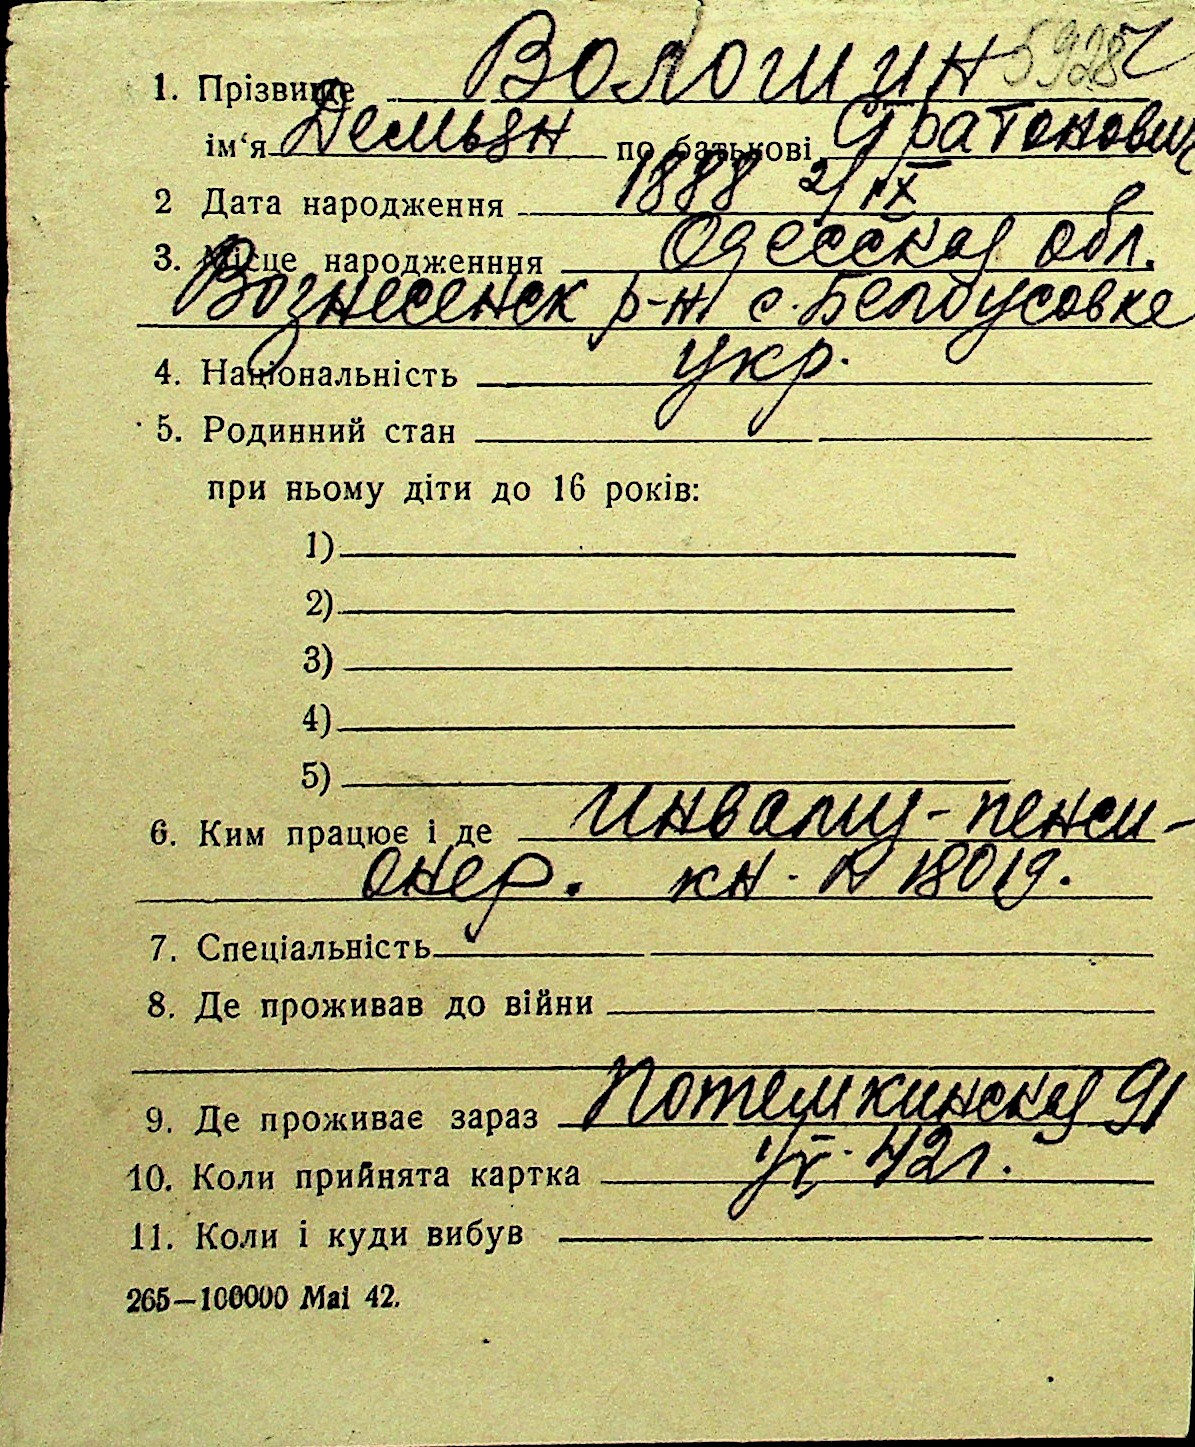 5928
1. Прізвище Волошин
ім‘я Демьян по батькові Стратонович
2 Дата народження 1888 2/IX
3. Місце народженння Одесская обл.
Вознесенск р-н с. Белоусовке
4. Національність укр.
5. Родинний стан
при ньому діти до 16 років:
1)
2)
3)
4)
5)
6. Ким працює і де Инвалид-пенси-
онер. кн. N 18019.
7. Спеціальність
8. Де проживав до війни
9. Де проживає зараз Потемкинская 91
10. Коли прийнята картка 42 г.
11. Коли і куди вибув
265—100000 Mai 42.